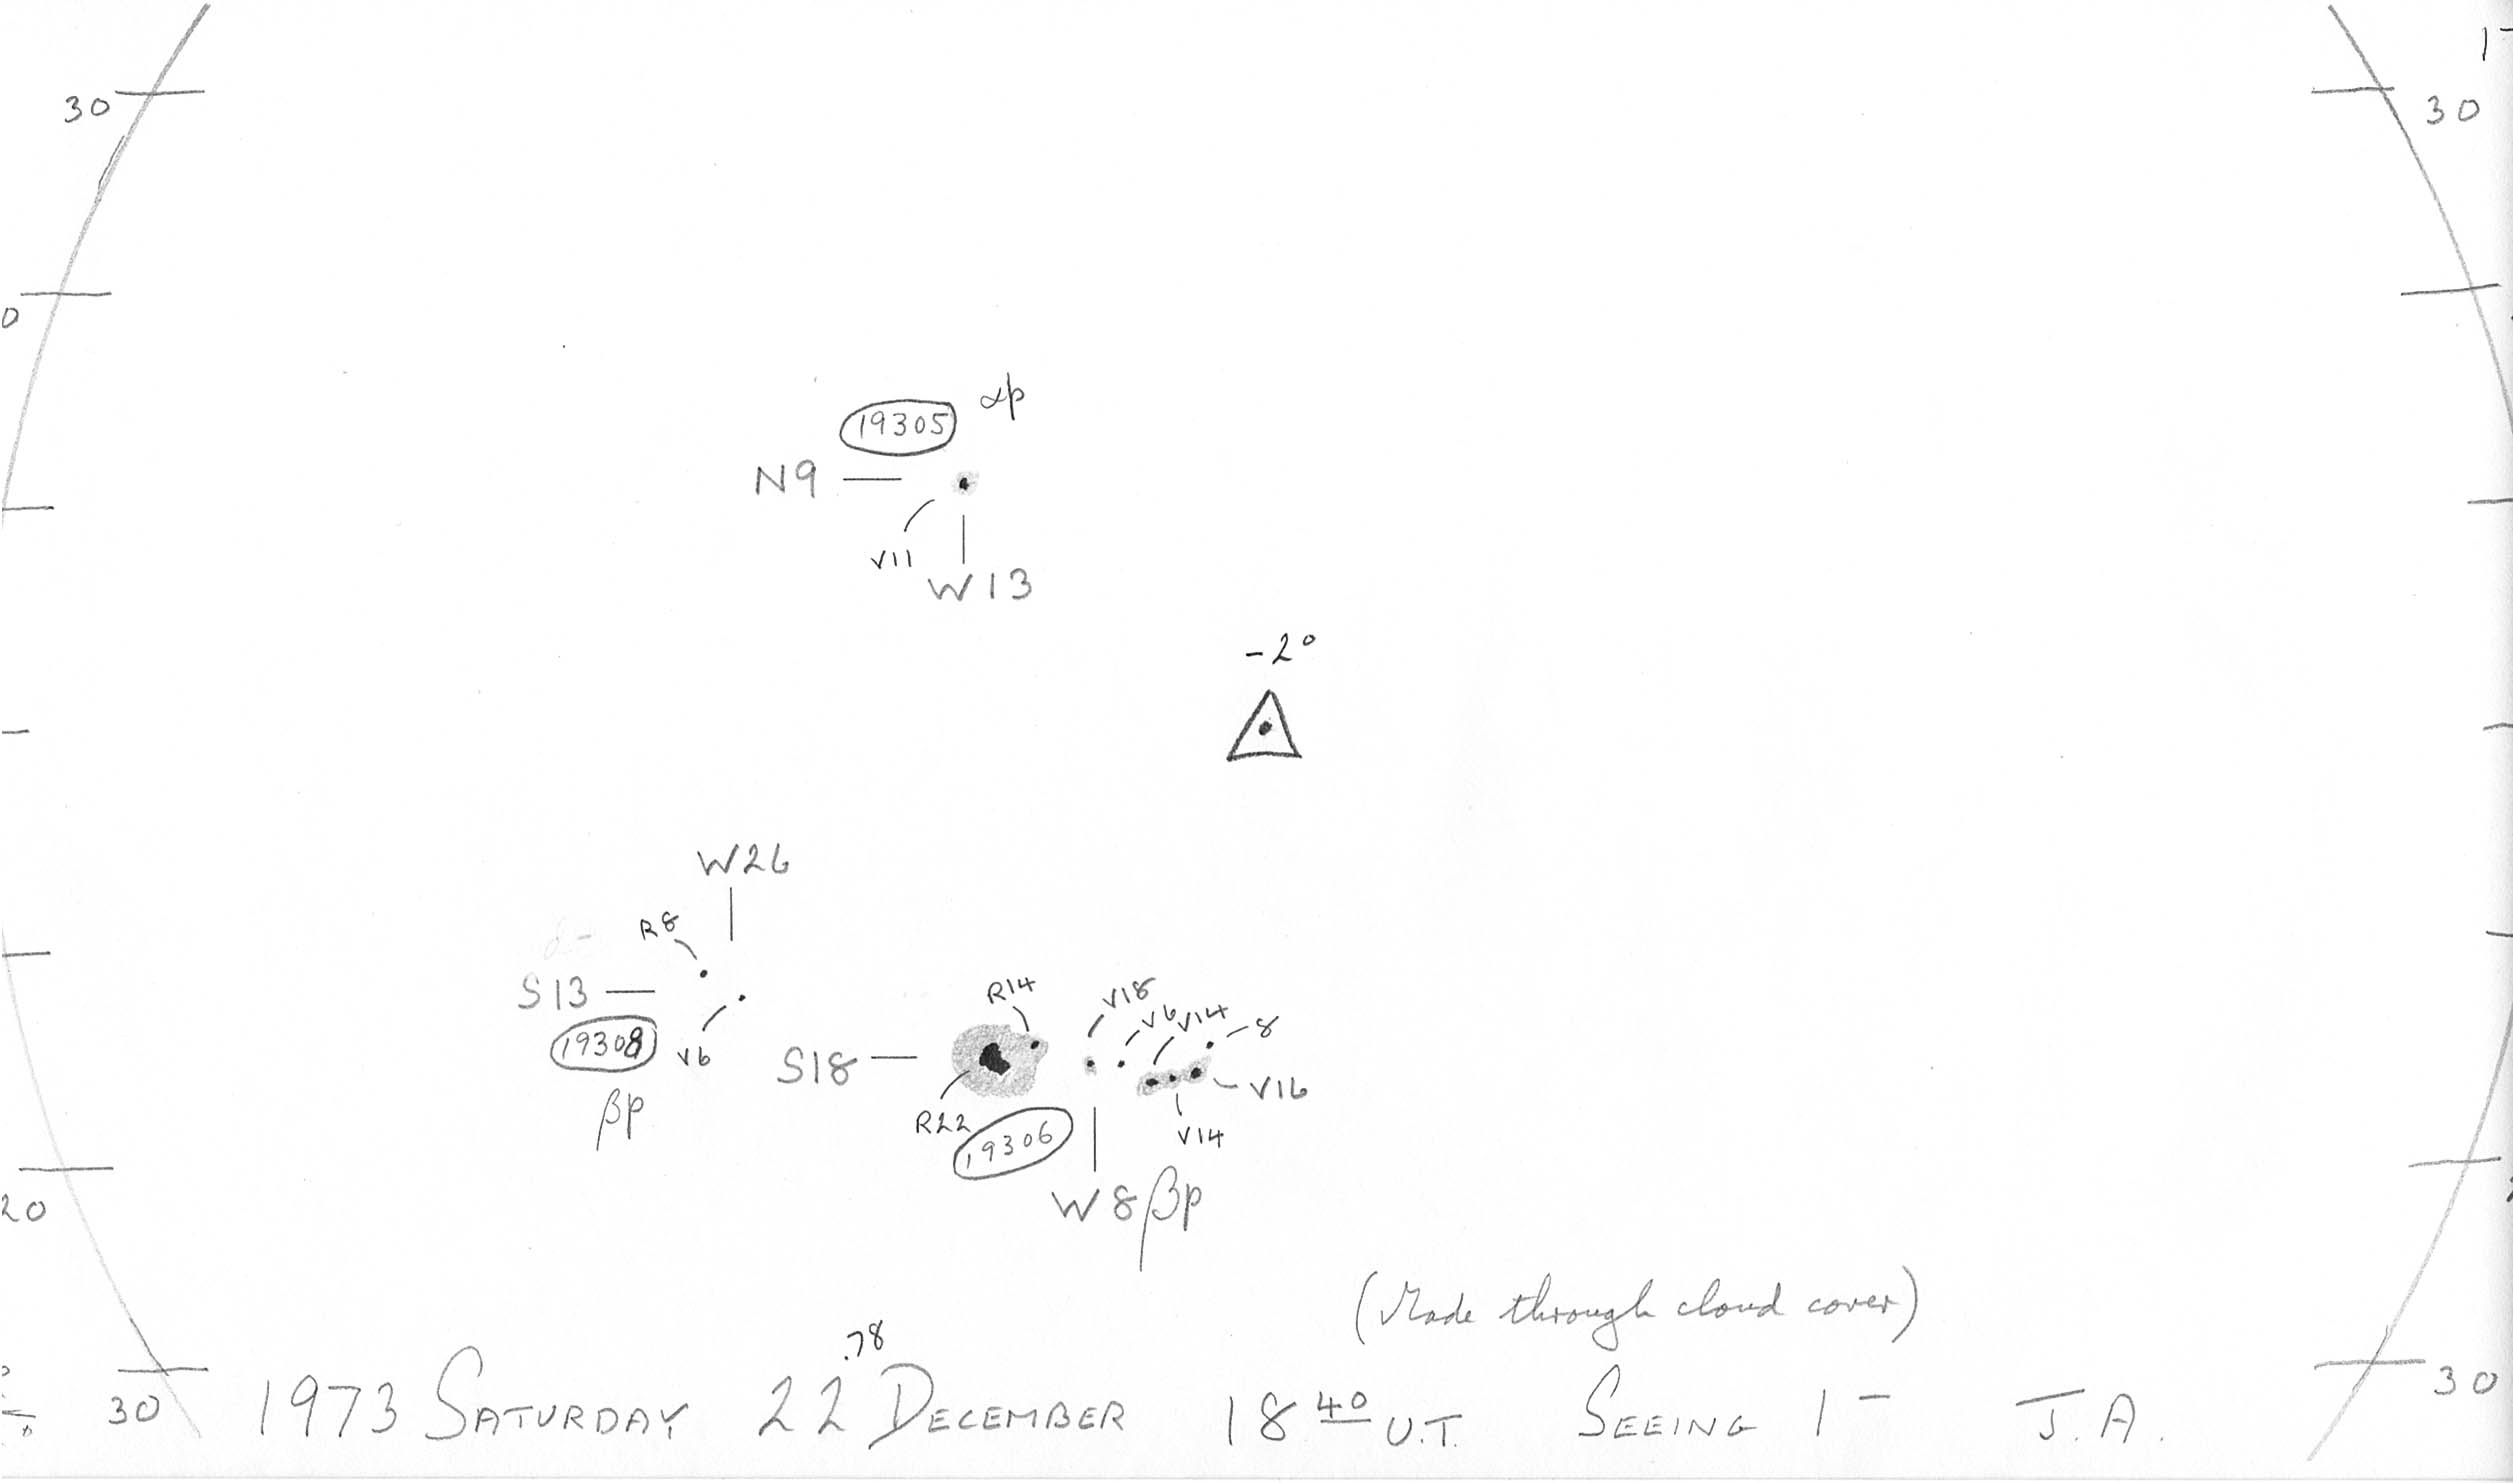 30
30
0
αp
19305
N9 —
V11
W13
-2°
W26
R8
S13 —
19308
V6
βp
R14
V18
V6
V14
8
S18 —
V16
R22
19306
V14
W8 βp
20
(Made through cloud cover)
.78
30
30
1973 SATURDAY 22 DECEMBER 18 40 U.T. SEEING 1- J.A.